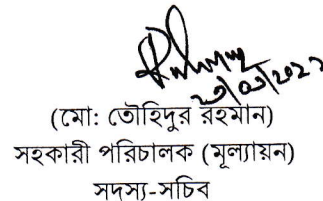 (মো: তৌহিদুর রহমান)
সহকারী পরিচালক (মূল্যায়ন)
সদস্য-সচিব